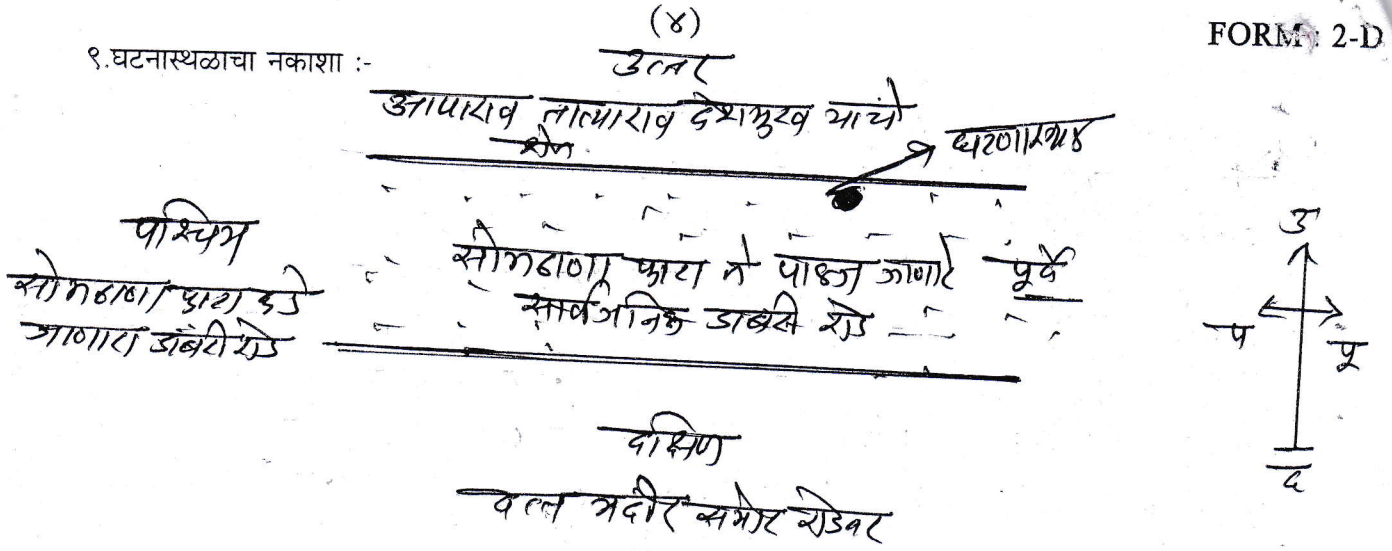 (४)
FORM : 2-D
९.घटनास्थळाचा नकाशा :-
उत्तर
आपाराव तात्याराव देशमुख यांचे
शेत
घटणास्थळ
पश्चिम
सोमठाणा फाटा कडे
जाणारा डांबरी रोड
सोमठाणा फाटा ते पाळज जाणारे
सार्वजनिक डांबरी रोड
पूर्व
उ
प
पू
द
दक्षिण
दत्त मंदीर समोर रोडवर